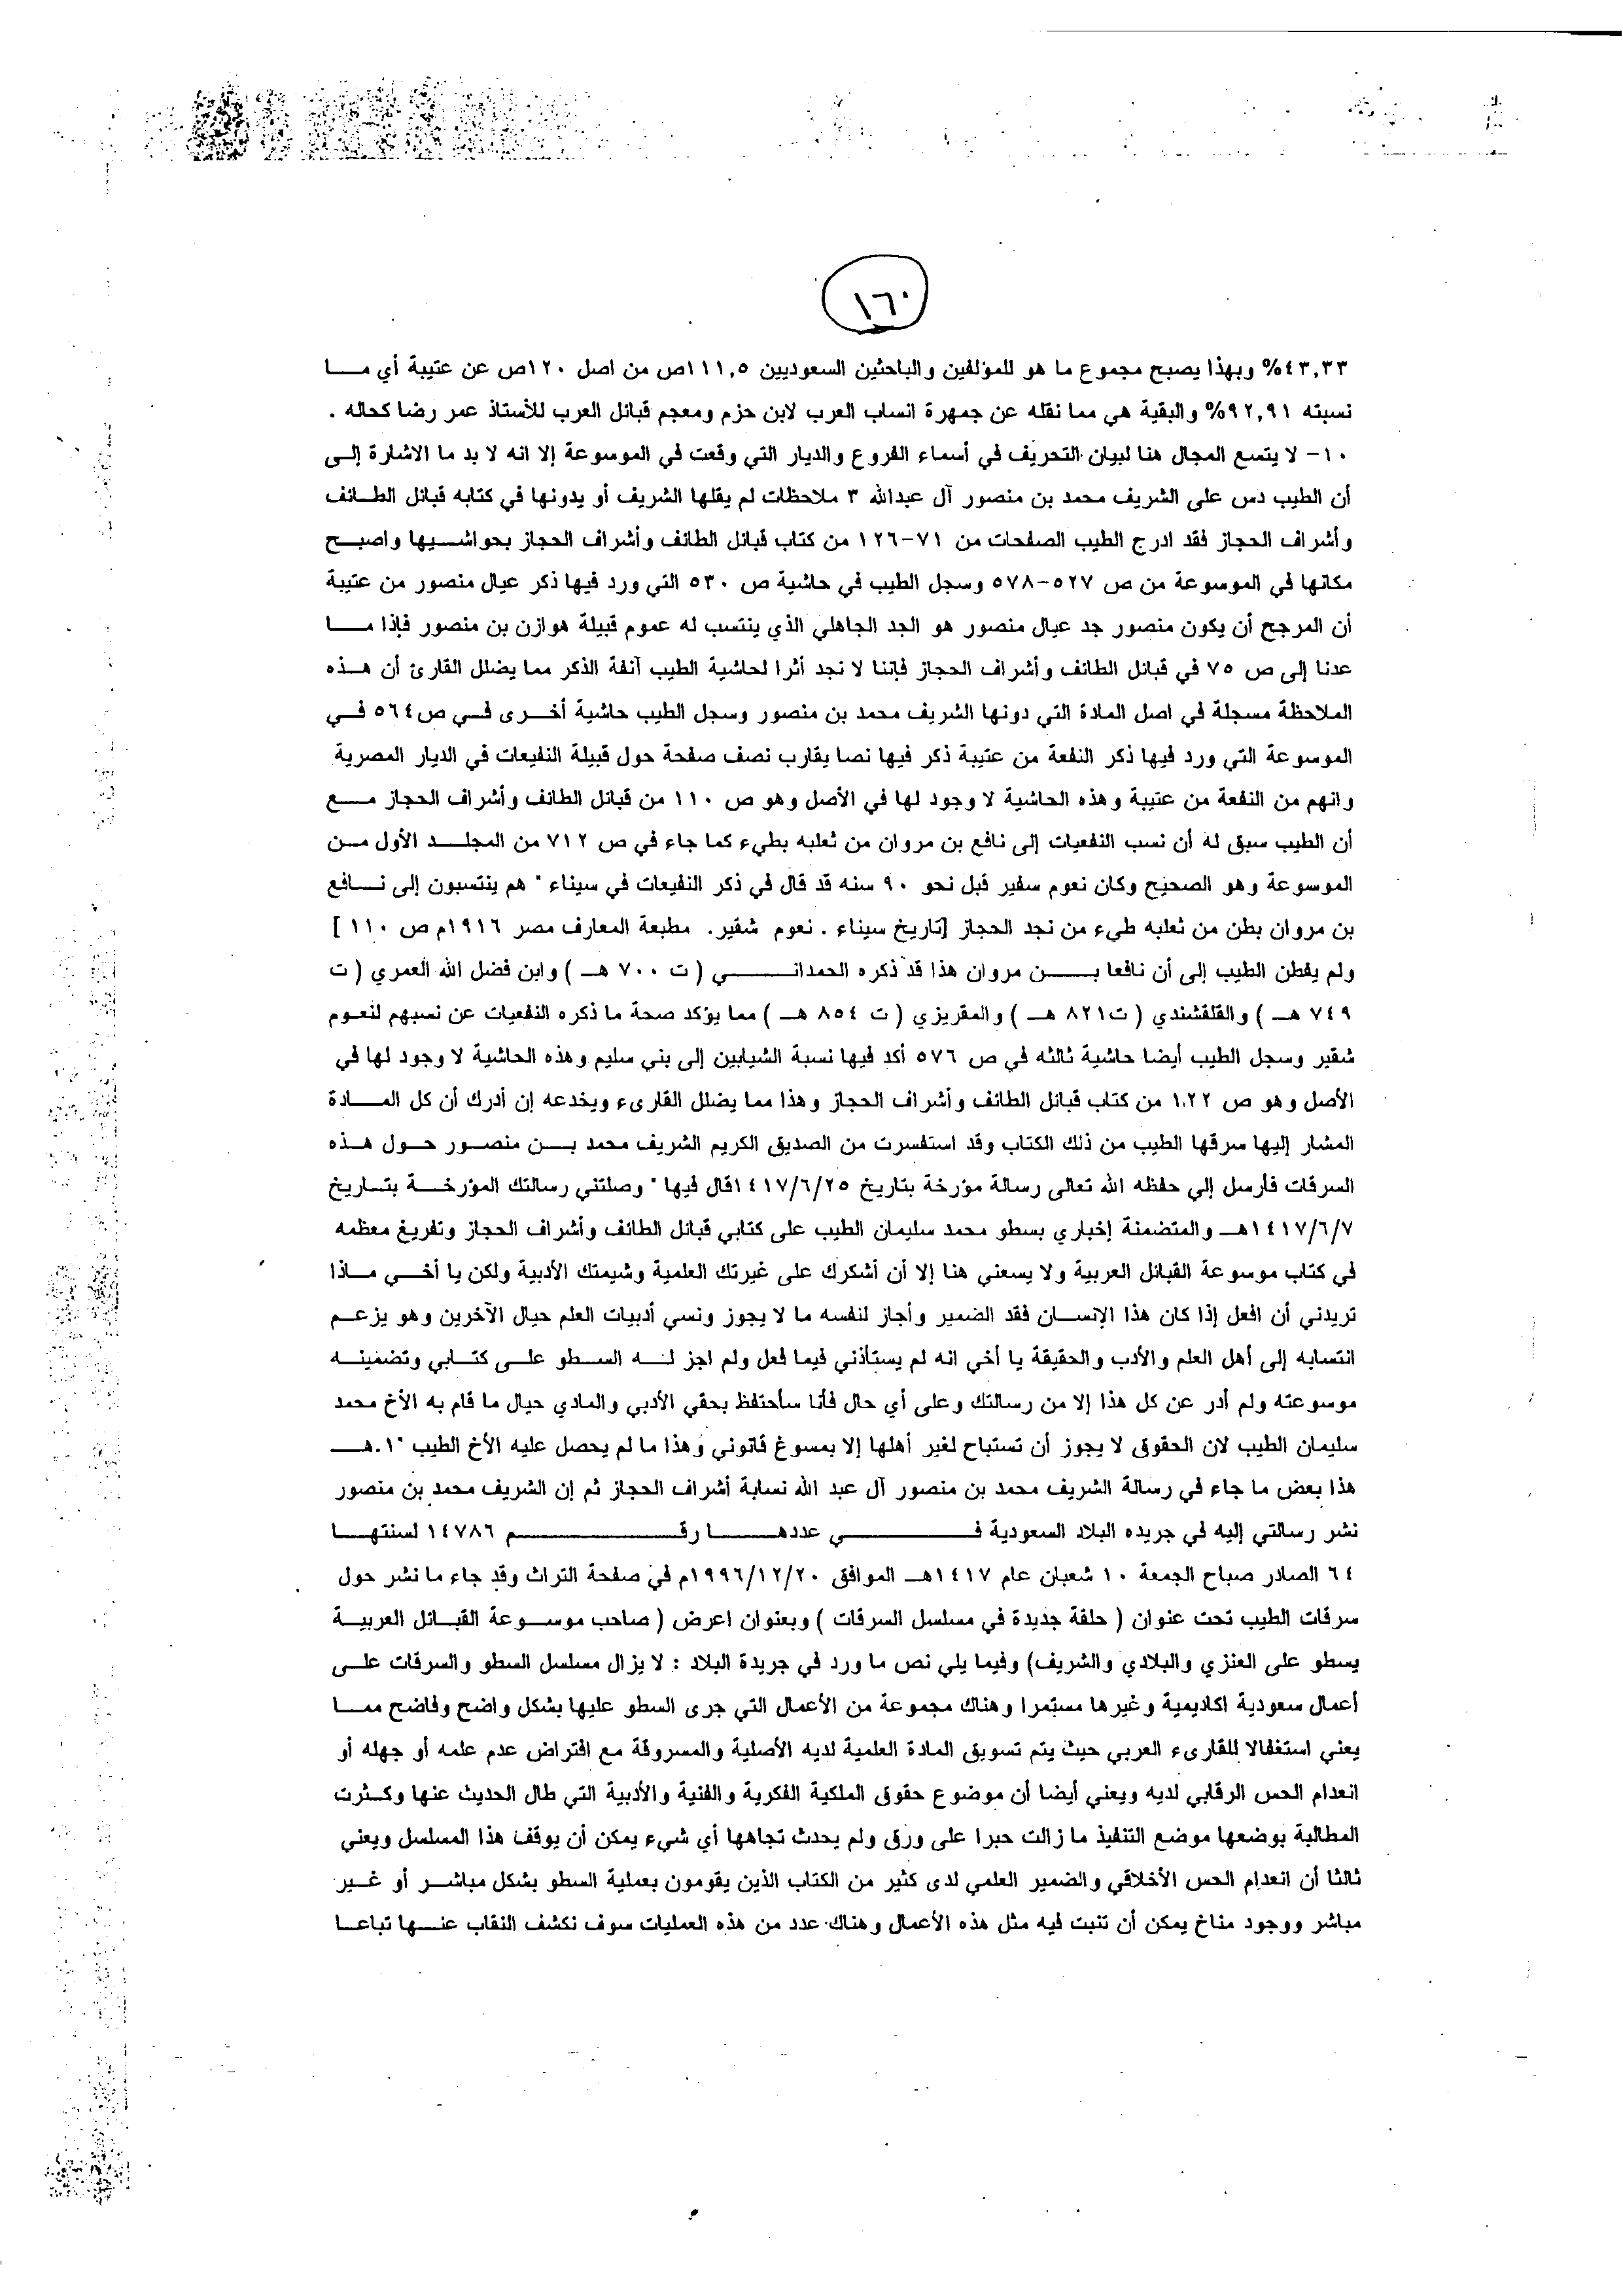 ١٦٠
٤٣,٣٣% وبهذا يصبح مجموع ما هو للمؤلفين والباحثين السعوديين ١١١,٥ص من اصل ١٢٠ص عن عتيبة أي ما
نسبته ٩٢,٩١% والبقية هي مما نقله عن جمهرة انساب العرب لابن حزم ومعجم قبائل العرب للأستاذ عمر رضا كحاله .
١٠- لا يتسع المجال هنا لبيان التحريف في أسماء الفروع والديار التي وقعت في الموسوعة إلا انه لا بد ما الاشارة إلى
أن الطيب دس على الشريف محمد بن منصور آل عبدالله ٣ ملاحظات لم يقلها الشريف أو يدونها في كتابه قبائل الطائف
وأشراف الحجاز فقد ادرج الطيب الصفحات من ٧١-١٢٦ من كتاب قبائل الطائف وأشراف الحجاز بحواشيها واصبح
مكانها في الموسوعة من ص ٥٢٧-٥٧٨ وسجل الطيب في حاشية ص ٥٣٠ التي ورد فيها ذكر عيال منصور من عتيبة
أن المرجح أن يكون منصور جد عيال منصور هو الجد الجاهلي الذي ينتسب له عموم قبيلة هوازن بن منصور فإذا ما
عدنا إلى ص ٧٥ في قبائل الطائف وأشراف الحجاز فإننا لا نجد أثرا لحاشية الطيب آنفة الذكر مما يضلل القارئ أن هذه
الملاحظة مسجلة في اصل المادة التي دونها الشريف محمد بن منصور وسجل الطيب حاشية أخرى في ص٥٦٤ في
الموسوعة التي ورد فيها ذكر النفعة من عتيبة ذكر فيها نصا يقارب نصف صفحة حول قبيلة النفيعات في الديار المصرية
وانهم من النفعة من عتيبة وهذه الحاشية لا وجود لها في الأصل وهو ص ١١٠ من قبائل الطائف وأشراف الحجاز مع
أن الطيب سبق له أن نسب النفعيات إلى نافع بن مروان من ثعلبه بطيء كما جاء في ص ٧١٢ من المجلد الأول من
الموسوعة وهو الصحيح وكان نعوم سفير قبل نحو ٩٠ سنه قد قال في ذكر النفيعات في سيناء " هم ينتسبون إلى نافع
بن مروان بطن من ثعلبه طيء من نجد الحجاز [تاريخ سيناء . نعوم شقير. مطبعة المعارف مصر ١٩١٦م ص ١١٠ ]
ولم يفطن الطيب إلى أن نافعا بن مروان هذا قد ذكره الحمداني ( ت ٧٠٠ هـ ) وابن فضل الله العمري ( ت
٧٤٩ هـ ) والقلقشندي ( ت٨٢١ هـ ) والمقريزي ( ت ٨٥٤ هـ ) مما يؤكد صحة ما ذكره النفعيات عن نسبهم لنعوم
شقير وسجل الطيب أيضا حاشية ثالثه في ص ٥٧٦ أكد فيها نسبة الشيابين إلى بني سليم وهذه الحاشية لا وجود لها في
الأصل وهو ص ١٢٢ من كتاب قبائل الطائف وأشراف الحجاز وهذا مما يضلل القارىء ويخدعه إن أدرك أن كل المادة
المشار إليها سرقها الطيب من ذلك الكتاب وقد استفسرت من الصديق الكريم الشريف محمد بن منصور حول هذه
السرقات فأرسل إلي حفظه الله تعالى رسالة مؤرخة بتاريخ ١٤١٧/٦/٢٥قال فيها " وصلتني رسالتك المؤرخة بتاريخ
١٤١٧/٦/٧هـ والمتضمنة إخباري بسطو محمد سليمان الطيب على كتابي قبائل الطائف وأشراف الحجاز وتفريغ معظمه
في كتاب موسوعة القبائل العربية ولا يسعني هنا إلا أن أشكرك على غيرتك العلمية وشيمتك الأدبية ولكن يا أخي ماذا
تريدني أن افعل إذا كان هذا الإنسان فقد الضمير وأجاز لنفسه ما لا يجوز ونسي أدبيات العلم حيال الآخرين وهو يزعم
انتسابه إلى أهل العلم والأدب والحقيقة يا أخي انه لم يستأذني فيما فعل ولم اجز له السطو على كتابي وتضمينه
موسوعته ولم أدر عن كل هذا إلا من رسالتك وعلى أي حال فأنا سأحتفظ بحقي الأدبي والمادي حيال ما قام به الأخ محمد
سليمان الطيب لان الحقوق لا يجوز أن تستباح لغير أهلها إلا بمسوغ قانوني وهذا ما لم يحصل عليه الأخ الطيب "ا.هـ
هذا بعض ما جاء في رسالة الشريف محمد بن منصور آل عبد الله نسابة أشراف الحجاز ثم إن الشريف محمد بن منصور
نشر رسالتي إليه في جريده البلاد السعودية في عددها رقم ١٤٧٨٦ لسنتها
٦٤ الصادر صباح الجمعة ١٠ شعبان عام ١٤١٧هـ الموافق ١٩٩٦/١٢/٢٠م في صفحة التراث وقد جاء ما نشر حول
سرقات الطيب تحت عنوان ( حلقة جديدة في مسلسل السرقات ) وبعنوان اعرض ( صاحب موسوعة القبائل العربية
يسطو على العنزي والبلادي والشريف) وفيما يلي نص ما ورد في جريدة البلاد : لا يزال مسلسل السطو والسرقات على
أعمال سعودية اكاديمية وغيرها مستمرا وهناك مجموعة من الأعمال التي جرى السطو عليها بشكل واضح وفاضح مما
يعني استغفالا للقارىء العربي حيث يتم تسويق المادة العلمية لديه الأصلية والمسروقة مع افتراض عدم علمه أو جهله أو
انعدام الحس الرقابي لديه ويعني أيضا أن موضوع حقوق الملكية الفكرية والفنية والأدبية التي طال الحديث عنها وكثرت
المطالبة بوضعها موضع التنفيذ ما زالت حبرا على ورق ولم يحدث تجاهها أي شيء يمكن أن يوقف هذا المسلسل ويعني
ثالثا أن انعدام الحس الأخلاقي والضمير العلمي لدى كثير من الكتاب الذين يقومون بعملية السطو بشكل مباشر أو غير
مباشر ووجود مناخ يمكن أن تنبت فيه مثل هذه الأعمال وهناك عدد من هذه العمليات سوف نكشف النقاب عنها تباعا